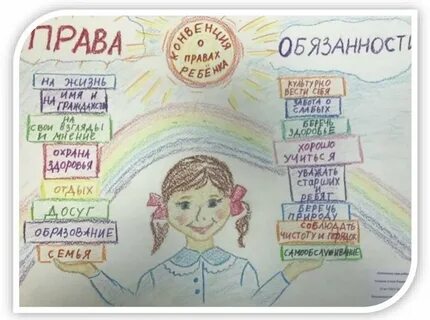 ПРАВА
КОНВЕНЦИЯ
О
ПРАВАХ
РЕБЕНКА
ОБЯЗАННОСТИ
НА ЖИЗНЬ
НА ИМЯ И
ГРАЖДАНСТВО
НА
СВОИ ВЗГЛЯДЫ
И МНЕНИЕ
ОХРАНА
ЗДОРОВЬЯ
ОТДЫХ
ДОСУГ
ОБРАЗОВАНИЕ
СЕМЬЯ
КУЛЬТУРНО
ВЕСТИ СЕБЯ
ЗАБОТА О
СЛАБЫХ
БЕРЕЧЬ
ЗДОРОВЬЕ
ХОРОШО
УЧИТЬСЯ
УВАЖАТЬ
СТАРШИХ
И
РЕБЯТ
БЕРЕЧЬ
ПРИРОДУ
СОБЛЮДАТЬ
ЧИСТОТУ И ПОРЯДОК
САМООБСЛУЖИВАНИЕ